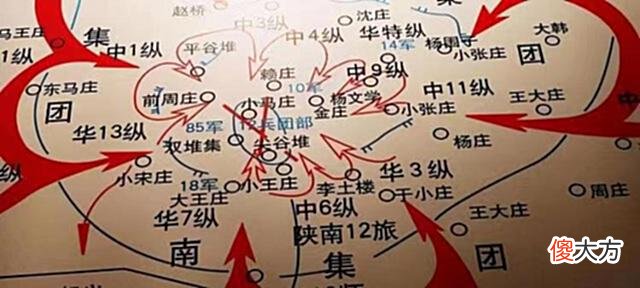 赵桥
沈庄
中3纵
华特纵
马王庄
集
中1纵
平谷堆
中4纵
14军
杨围子
小张庄
大韩
团
东马庄
赖庄
中9纵
前周庄
小马庄
10军
杨文学
中11纵
团
金庄
小张庄
王大庄
华13纵
85军
12兵团部
双堆集
尖谷堆
杨庄
小宋庄
18军
小王庄
李土楼
华3纵
于小庄
周庄
大王庄
华7纵
中6纵
王大庄
陕南12旅
南
集
团
傻大方